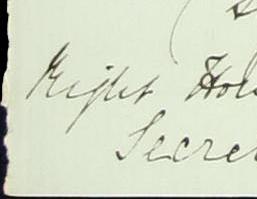 Right Hon
Secre